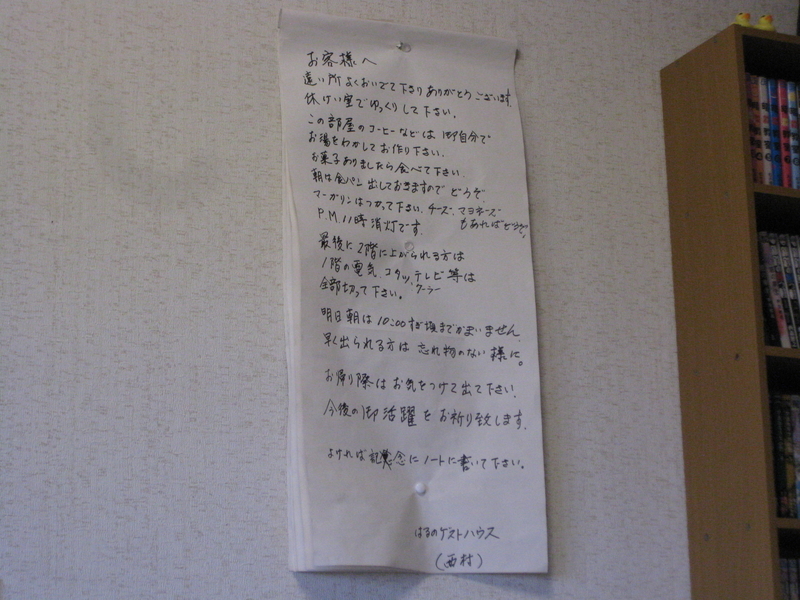 お客様へ
遠い所よくおいでて下さりありがとうございます。
休けい室でゆっくりして下さい。
この部屋のコーヒーなどは御自分で
お湯をわかしてお作り下さい。
お菓子ありましたら食べて下さい。
朝は食パン出しておきますのでどうぞ。
マーガリンはつかって下さい。チーズ、マヨネーズ
もあればどうぞ。
P.M.11時消灯です。
最後に2階に上がられる方は
1階の電気、コタツ、テレビ等は
クーラー
全部切って下さい。
明日朝は10:00すぎ頃までかまいません。
早く出られる方は忘れ物のない様に。
お帰り際はお気をつけて出て下さい。
今後の御活躍をお祈り致します。
よければ記念にノートに書いて下さい。
はるのゲストハウス
(西村)